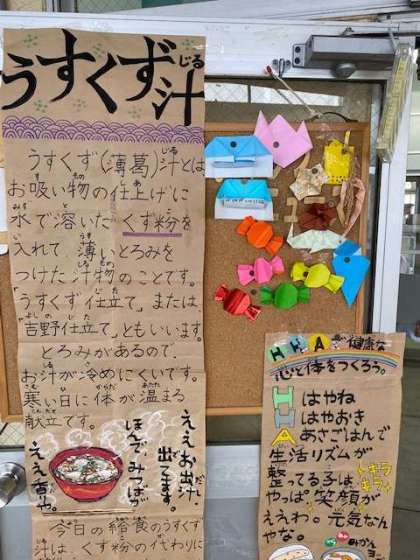 うすくず汁
うすくず(薄葛)汁とは
お吸い物の仕上げに
水で溶いたくず粉を
入れて薄いとろみを
つけた汁物のことです。
「うすくず仕立て」または
「吉野仕立て」ともいいます。
とろみがあるので
お汁が冷めにくいです。
寒い日に体が温まる
献立です。
ええお出汁
出てます。
ほんで、みつばが
ええ香や。
今日の給食のうすくず
汁は、くず粉の代わりに
HHAで健康な
心と体をつくろう。
はやね
はやおき
あさごはんで
生活リズムが
整ってる子は
キラキラ
やっぱ笑顔が
ええわ。元気なん
やな。